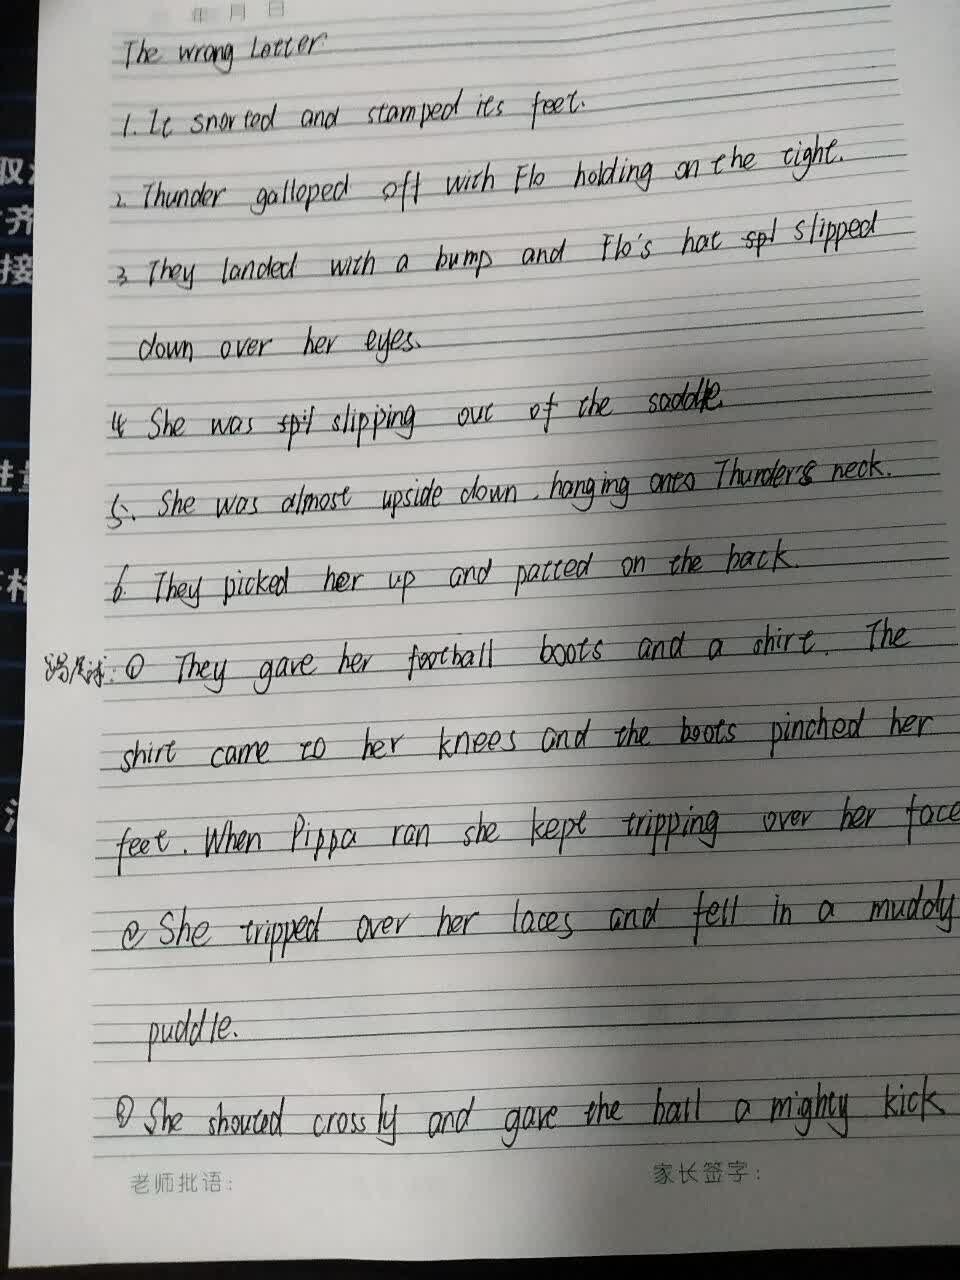 年 月 日
The wrong Letter
1. It snorted and stamped its feet.
2. Thunder galloped off with Flo holding on the tight.
3 They landed with a bump and Flo's hat spl slipped
down over her eyes.
4 She was spil slipping out of the saddle.
5. She was almost upside down, hanging onto Thunder's neck.
6 They picked her up and patted on the back.
① They gave her football boots and a shirt. The
shirt came to her knees and the boots pinched her
feet. When Pippa ran she kept tripping over her face
② She tripped over her laces and fell in a muddy
puddle.
③ She shouted crossly and gave the ball a mighty kick
老师批语: 家长签字: